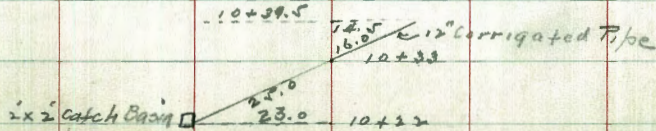 10+39.5
14.5
16.0
12" Corrigated Pipe
10+33
25.0
2'x2' Catch Basin
23.0
10+22